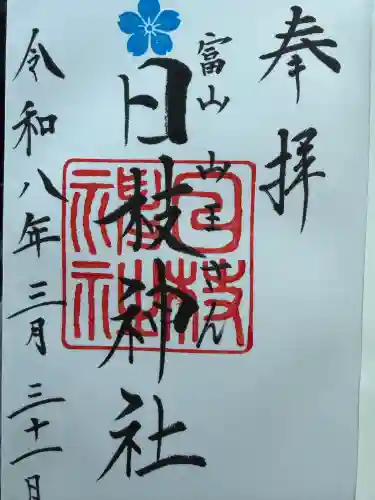 奉拝
富山 山王さん
日枝神社
日枝神社
令和八年 三月 三十一日